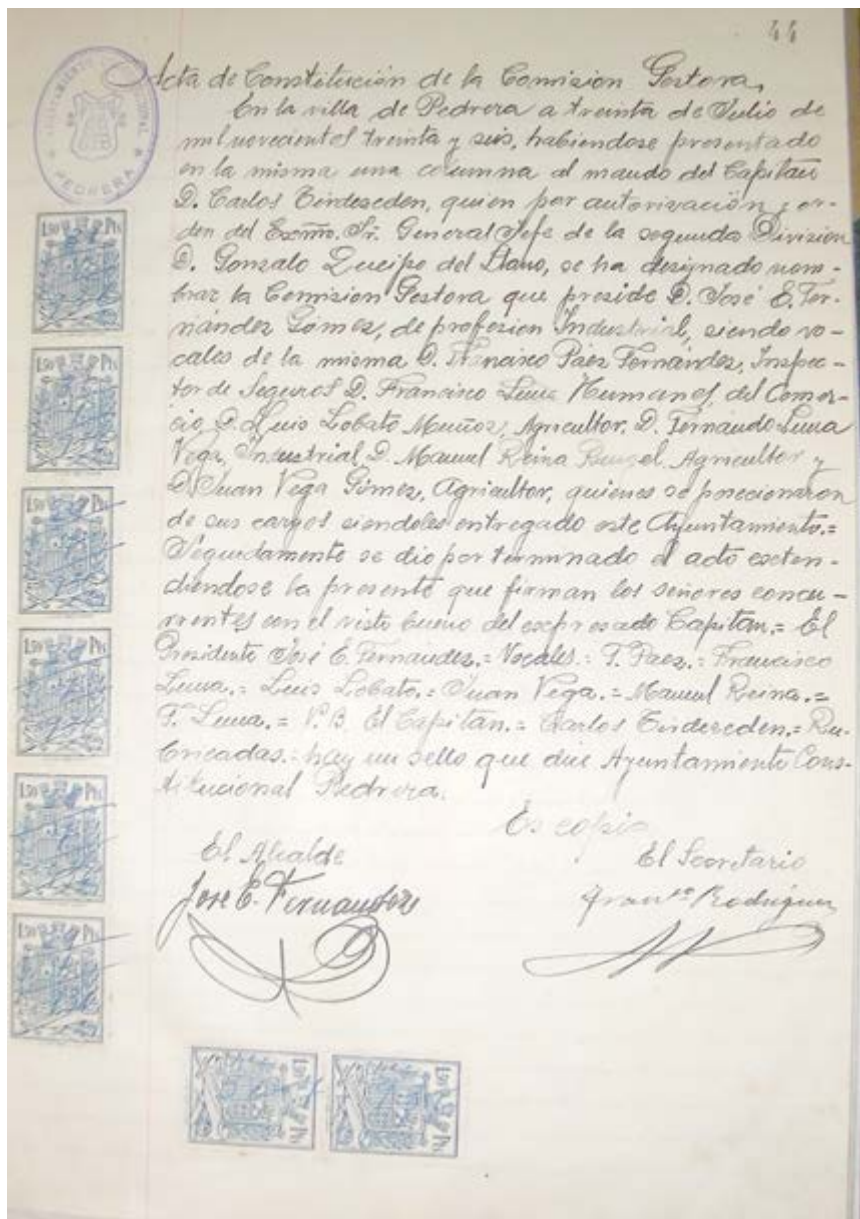 44
Acta de Constitución de la Comision Gestora,
En la villa de Pedrera a treinta de Julio de
mil novecientos treinta y seis, habiendose presentado
en la misma una columna al mando del Capitan
D. Carlos Tindereden, quien por autorización y or-
den del Excmo. Sr. General Jefe de la segunda Division
D. Gonzalo Queipo del Llano, se ha designado nom-
brar la Comision Gestora que preside D. José E. Fer-
nández Gomez, de profesion Industrial, siendo vo-
cales de la misma D. Francisco Páez Fernández, Inspec-
tor de Seguros D. Francisco Luna Humanes, del Comer-
cio, D. Luis Lobato Muñoz, Agricultor, D. Fernando Luna
Vega, Industrial, D. Manuel Reina Rangel, Agricultor y
D. Juan Vega Gómez, Agricultor, quienes se posecionaron
de sus cargos siendoles entregado este Ayuntamiento.=
Seguidamente se dio por terminado el acto exten-
diendose la presente que firman los señores concu-
rrentes con el visto bueno del expresado Capitan.= El
Presidente José E. Fernandez.= Vocales.: F. Paez.= Francisco
Luna.= Luis Lobato.= Juan Vega.= Manuel Reina.=
F. Luna.= V.B. El Capitan.= Carlos Tindereden.= Ru-
bricadas.= hay un sello que dice Ayuntamiento Cons-
titucional Pedrera.
Es copia
El Alcalde
El Secretario
Jose E. Fernandez
Franco Rodriguez
AYUNTAMIENTO CONSTITUCIONAL
PEDRERA
1,50 Pts
1,50 Pts
1,50 Pts
1,50 Pts
1,50 Pts
1,50 Pts
1,50 Pts
1,50 Pts